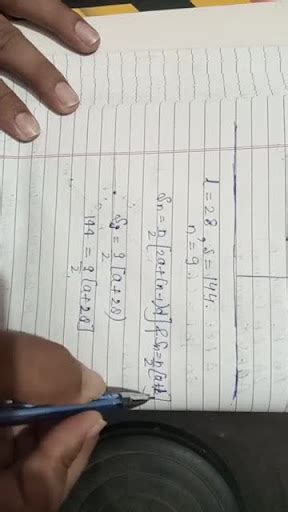 l = 28, S = 144.
n = 9
Sn = n/2 [2a+(n-1)d] & Sn = n/2 [a+l]
S9 = 9/2 [a+28)
144 = 9/2 [a+28]